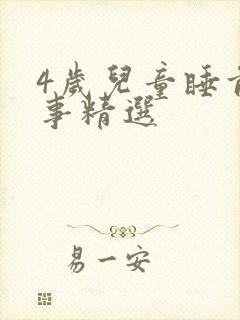 4歲兒童睡前
事精選
易一安